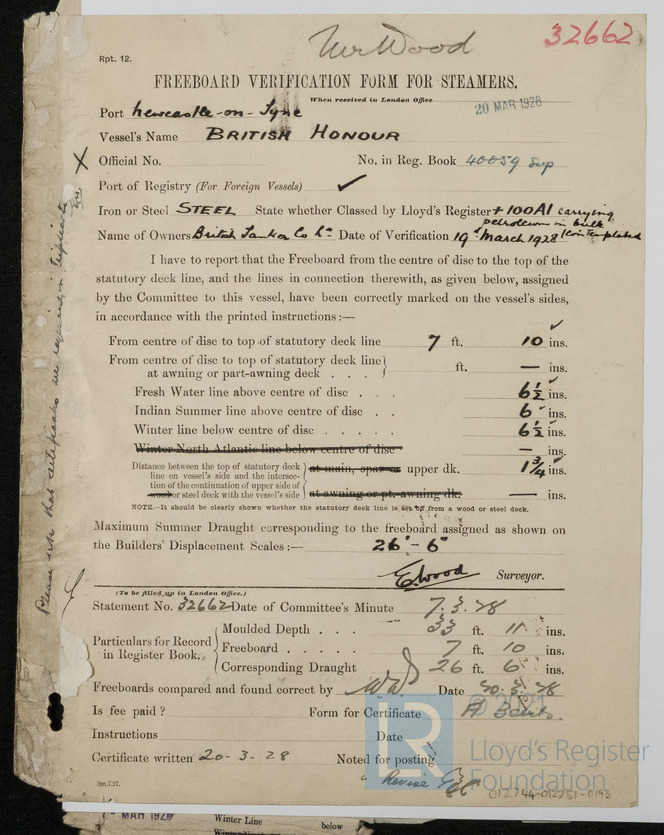 Rpt. 12.
Mr Wood
32662
FREEBOARD VERIFICATION FORM FOR STEAMERS.
When received in London Office
20 MAR 1928
Port Newcastle-on-Tyne
Vessel's Name BRITISH HONOUR
Official No. No. in Reg. Book 40059 sup
Port of Registry (For Foreign Vessels) ✓
Iron or Steel STEEL State whether Classed by Lloyd's Register +100A1 carrying
petroleum in bulk
Name of Owners British Tanker Co Ld Date of Verification 19th March 1928 (contemplated
I have to report that the Freeboard from the centre of disc to the top of the
statutory deck line, and the lines in connection therewith, as given below, assigned
by the Committee to this vessel, have been correctly marked on the vessel's sides,
in accordance with the printed instructions:—
From centre of disc to top of statutory deck line 7 ft. 10 ins.
From centre of disc to top of statutory deck line
at awning or part-awning deck . . . ft. — ins.
Fresh Water line above centre of disc . . . 6½ ins.
Indian Summer line above centre of disc . . 6 ins.
Winter line below centre of disc . . . . . 6½ ins.
Winter North Atlantic line below centre of disc — ins.
Distance between the top of statutory deck
line on vessel's side and the intersec-
tion of the continuation of upper side of
wood or steel deck with the vessel's side
at main, spar or upper dk. 1¾ ins.
at awning or pt. awning dk. — ins.
NOTE.—It should be clearly shewn whether the statutory deck line is set off from a wood or steel deck.
Maximum Summer Draught corresponding to the freeboard assigned as shown on
the Builders' Displacement Scales:— 26'-6"
E. Wood Surveyor.
(To be filled up in London Office.)
Statement No. 32662 Date of Committee's Minute 7.3.28
Particulars for Record
in Register Book.
Moulded Depth . . . 33 ft. 11 ins.
Freeboard . . . . . 7 ft. 10 ins.
Corresponding Draught 26 ft. 6 ins.
Freeboards compared and found correct by Date 20.3.28
Is fee paid? Form for Certificate A
Instructions Date
Certificate written 20-3-28 Noted for posting
2m.7.27.
Please note that certificates are required in triplicate
© 2021
LR
Lloyd's Register
Foundation
012744-012751-0193
MAR 192
Winter Line below